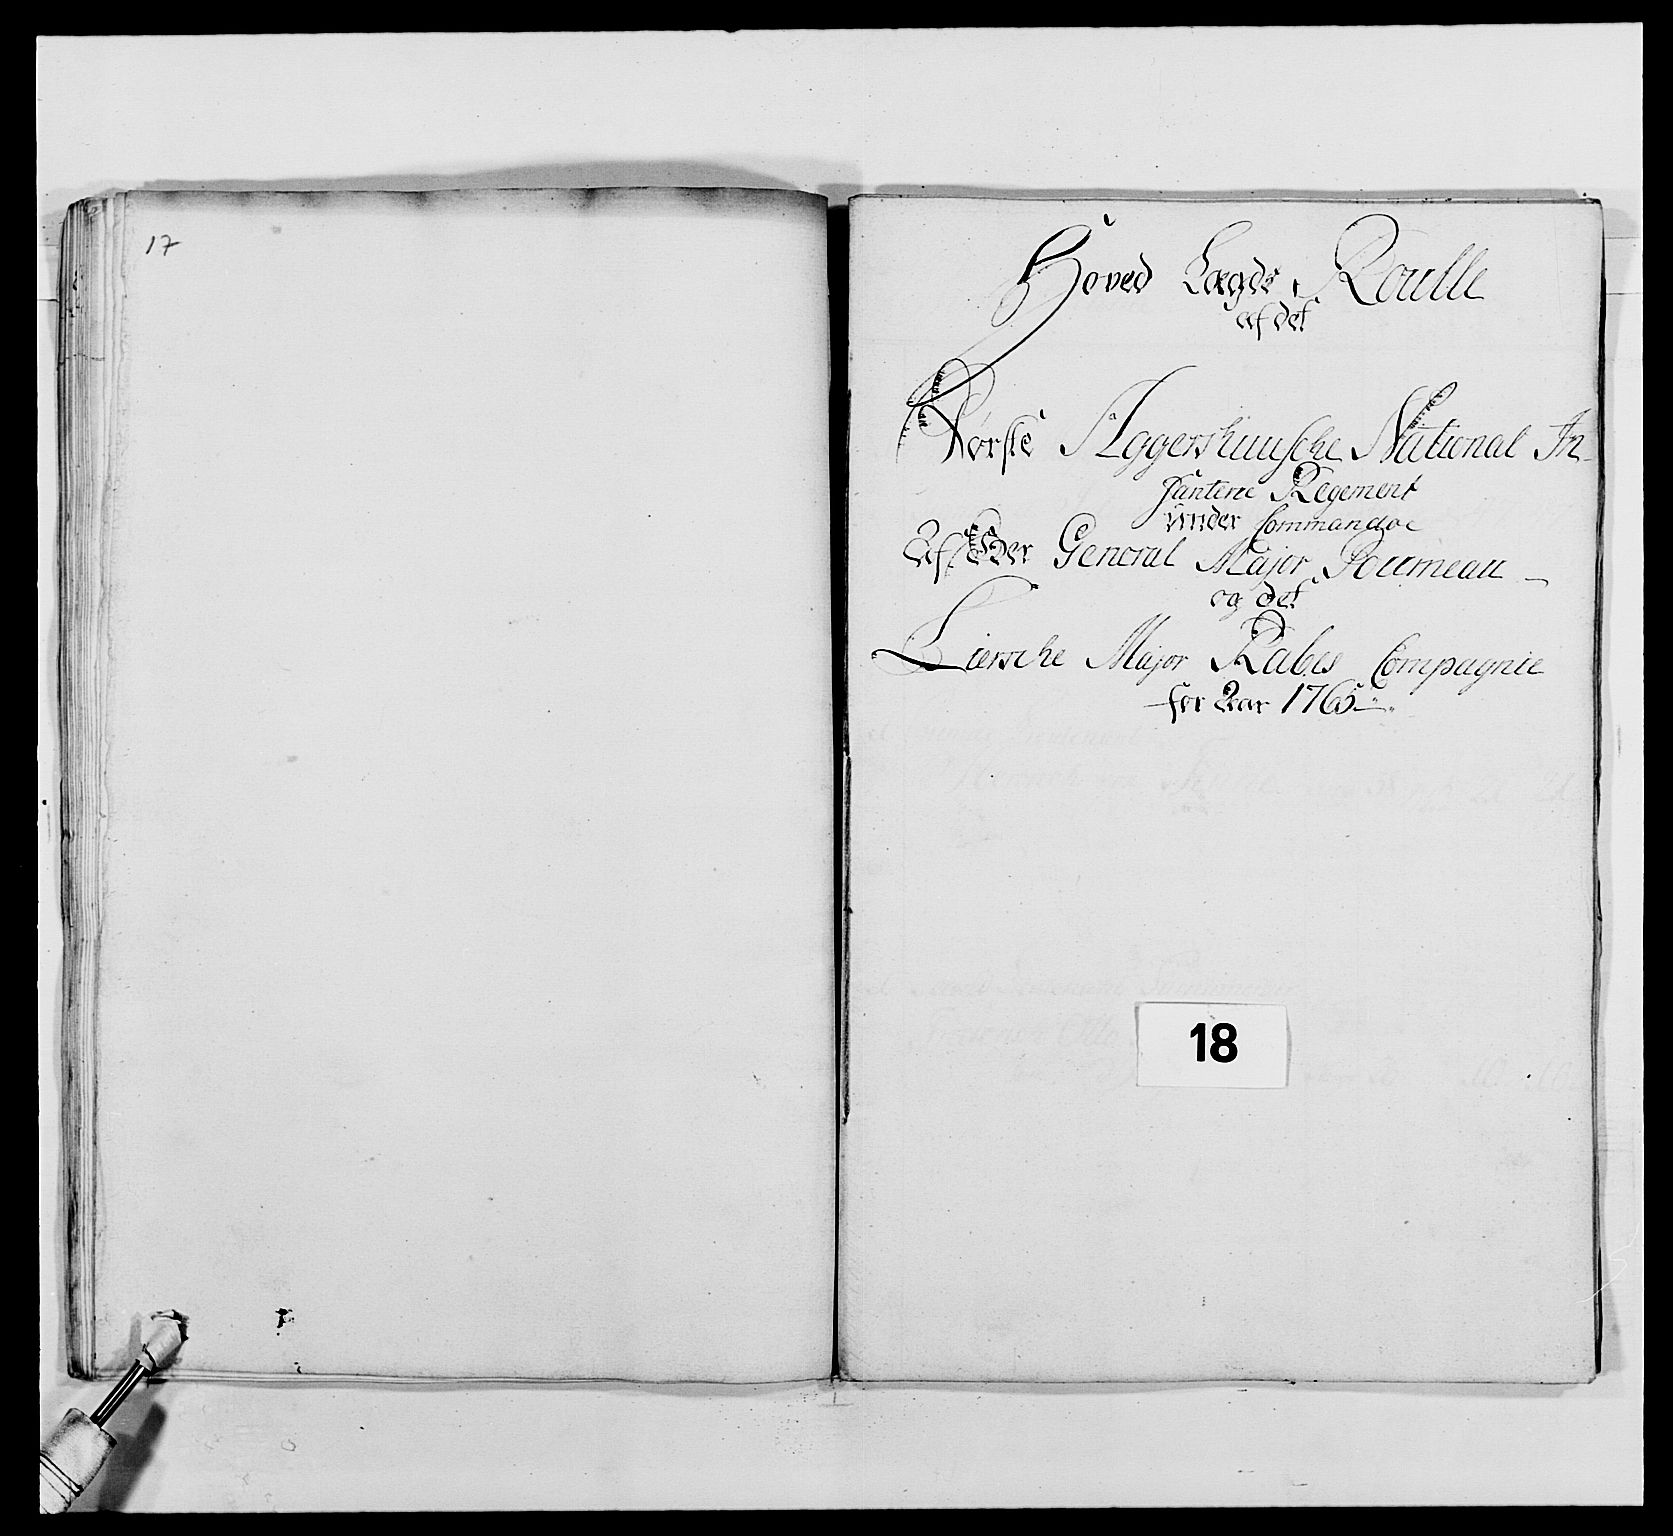 17
Hoved Lægds Roulle
af det
Første Aggershuusche National In-
fanterie Regement
under Commandoe
af Hr General Major Poumeau
og det
Liersche Major Rabes Compagnie
for Aar 1765
18